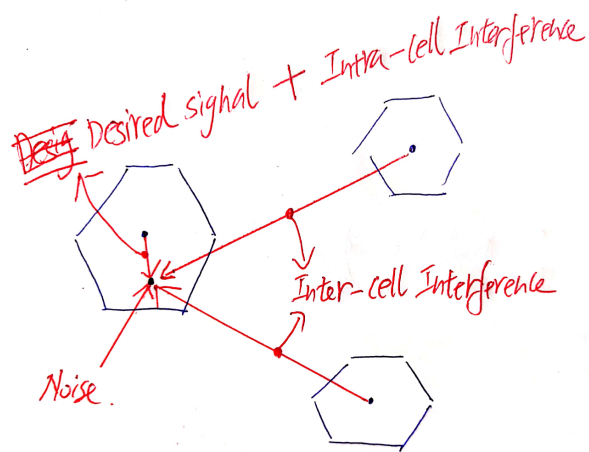 Desired signal + Intra-cell Interference
Inter-cell Interference
Noise.